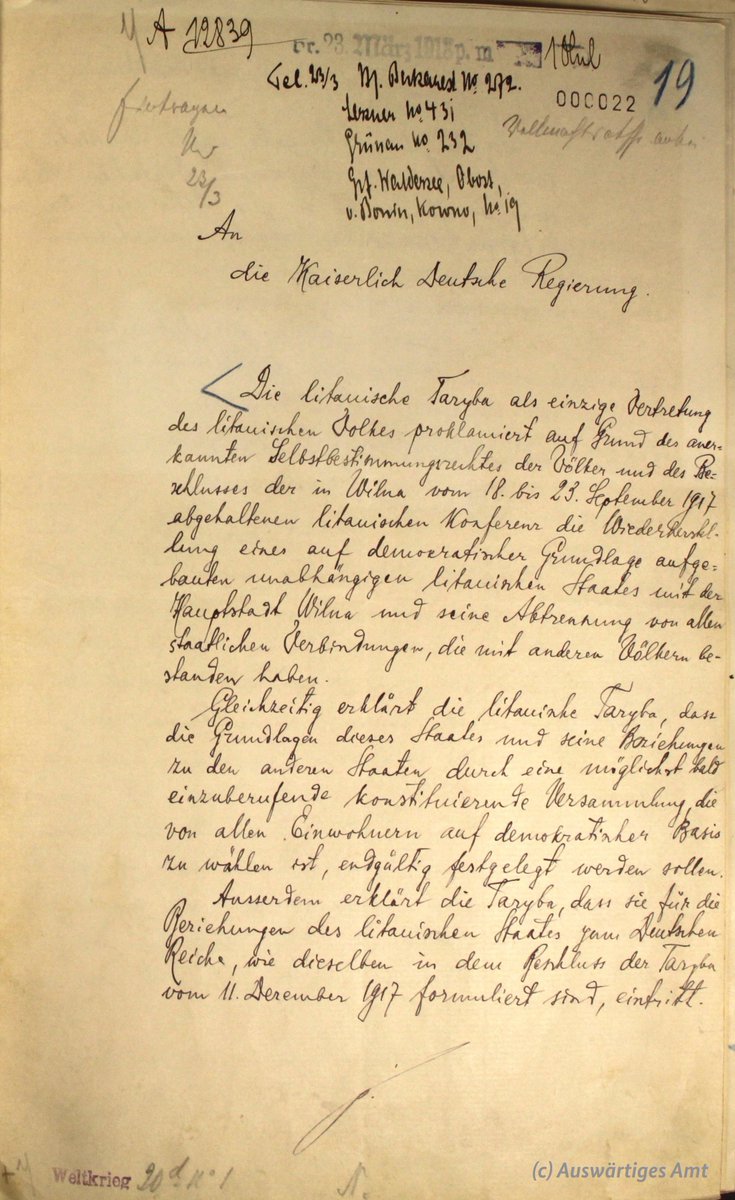 A 12839
pr. 23. März 1918 p. m.
Tel. 23/3 Bukarest No. 272.
Lersner No 431
Grünau No. 232
Gf. Waldersee, Obost,
v. Bonin, Kowno, No 19
000022
19
23/3
An
die Kaiserlich Deutsche Regierung.
Die litauische Taryba als einzige Vertretung
des litauischen Volkes proklamiert auf Grund des aner-
kannten Selbstbestimmungsrechtes der Völker und des Be-
schlusses der in Wilna vom 18. bis 23. September 1917
abgehaltenen litauischen Konferenz die Wiederherstel-
lung eines auf demokratischer Grundlage aufge-
bauten unabhängigen litauischen Staates mit der
Hauptstadt Wilna und seine Abtrennung von allen
staatlichen Verbindungen, die mit anderen Völkern be-
standen haben.
Gleichzeitig erklärt die litauische Taryba, dass
die Grundlagen dieses Staates und seine Beziehungen
zu den anderen Staaten durch eine möglichst bald
einzuberufende konstituierende Versammlung, die
von allen Einwohnern auf demokratischer Basis
zu wählen ist, endgültig festgelegt werden sollen.
Ausserdem erklärt die Taryba, dass sie für die
Beziehungen des litauischen Staates zum Deutschen
Reiche, wie dieselben in dem Beschluss der Taryba
vom 11. Dezember 1917 formuliert sind, eintritt.
Weltkrieg 20d No 1
(c) Auswärtiges Amt